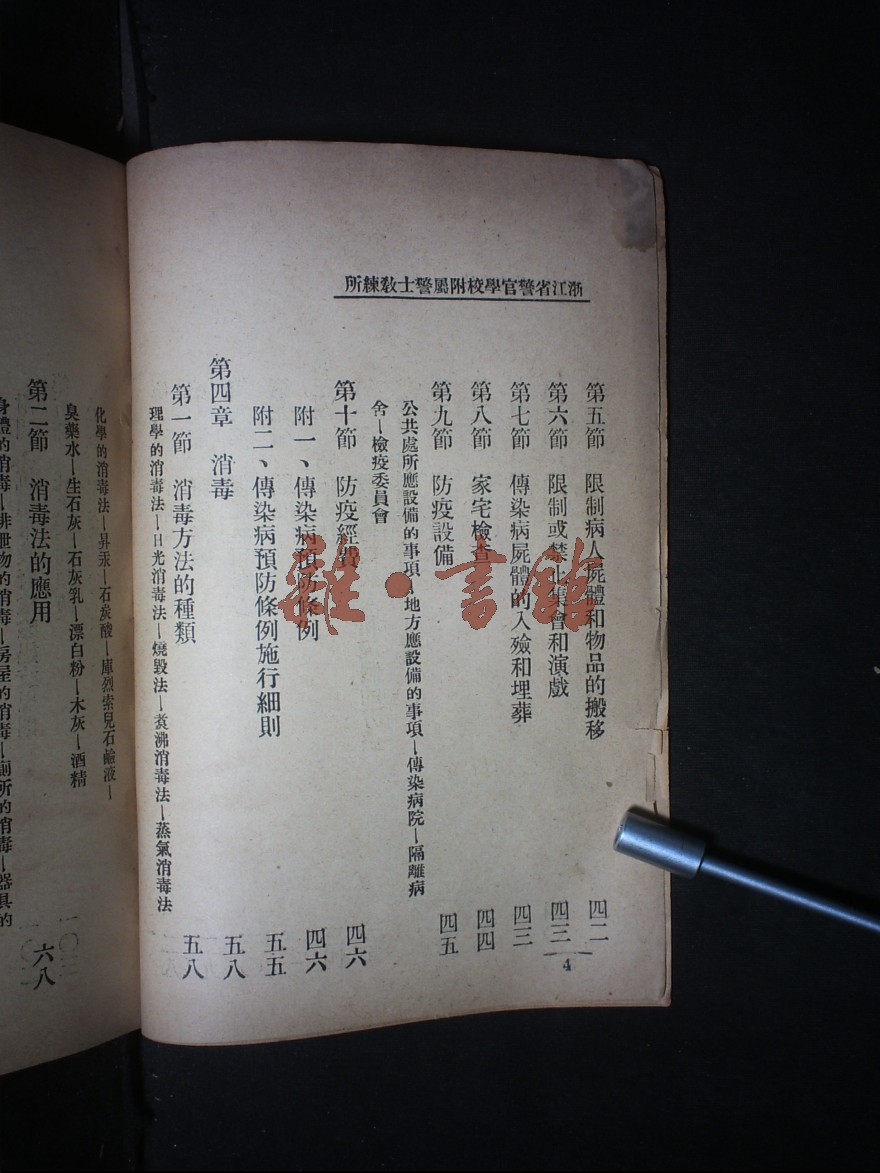 浙江省警官學校附屬警士教練所
第五節 限制病人屍體和物品的搬移 四二
第六節 限制或禁止集會和演戲 四三
第七節 傳染病屍體的入殮和埋葬 四三
第八節 家宅檢查 四四
第九節 防疫設備 四五
公共處所應設備的事項—地方應設備的事項—傳染病院—隔離病
舍—檢疫委員會
第十節 防疫經費 四六
附一、傳染病預防條例 四六
附二、傳染病預防條例施行細則 五五
第四章 消毒 五八
第一節 消毒方法的種類 五八
理學的消毒法—日光消毒法—燒毀法—煮沸消毒法—蒸氣消毒法
4
化學的消毒法—昇汞—石炭酸—庫烈索兒石鹼液—
臭藥水—生石灰—石灰乳—漂白粉—木灰—酒精
第二節 消毒法的應用 六八
身體的消毒—排泄物的消毒—房屋的消毒—廁所的消毒—器具的
雜·書館